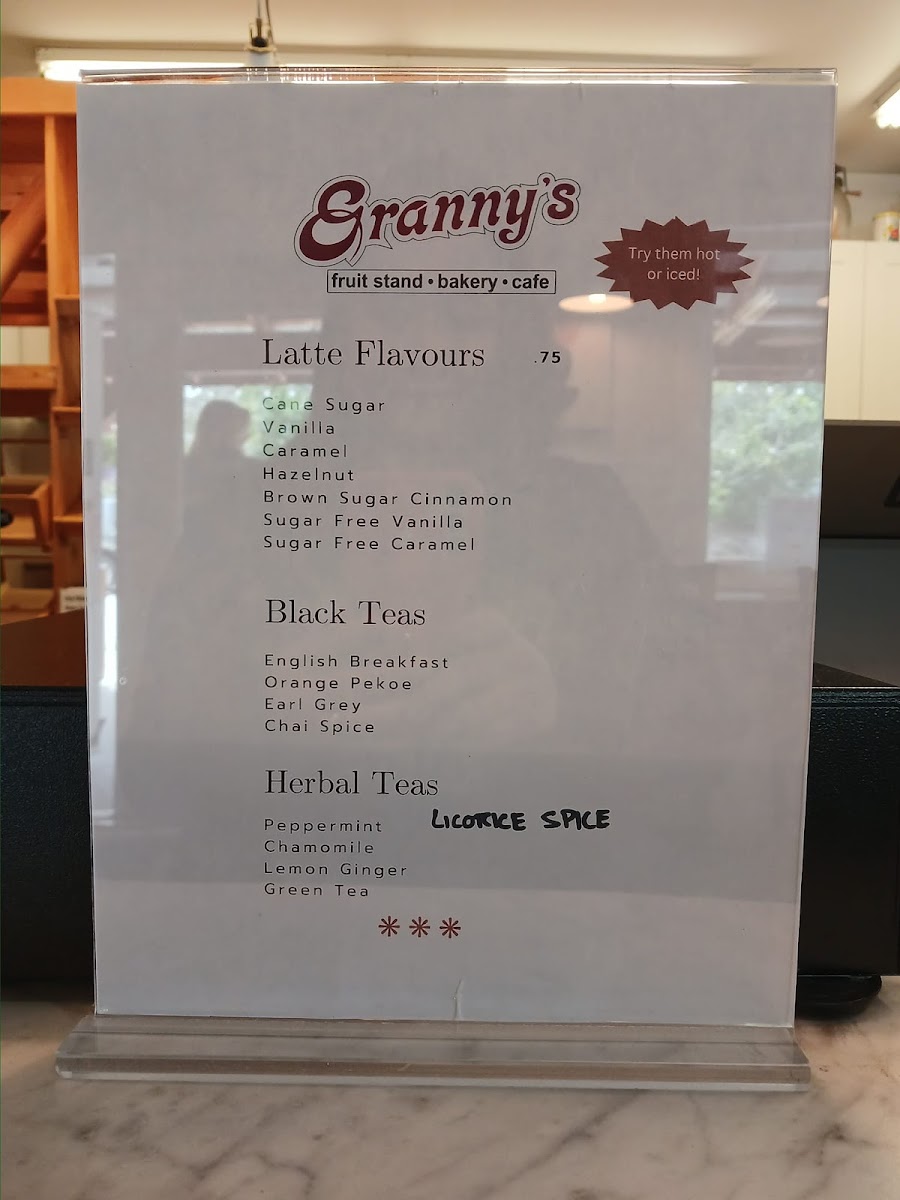 Granny's
fruit stand • bakery • cafe
Try them hot
or iced!
Latte Flavours .75
Cane Sugar
Vanilla
Caramel
Hazelnut
Brown Sugar Cinnamon
Sugar Free Vanilla
Sugar Free Caramel
Black Teas
English Breakfast
Orange Pekoe
Earl Grey
Chai Spice
Herbal Teas
Peppermint LICORICE SPICE
Chamomile
Lemon Ginger
Green Tea